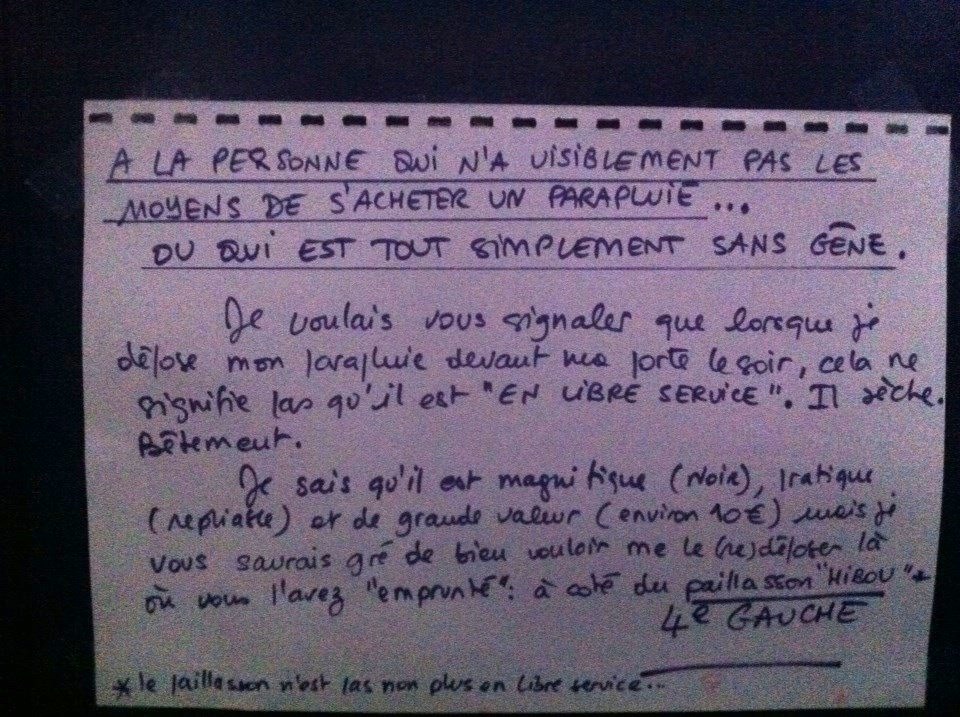 A LA PERSONNE QUI N'A VISIBLEMENT PAS LES
MOYENS DE S'ACHETER UN PARAPLUIE...
OU QUI EST TOUT SIMPLEMENT SANS GÊNE.
Je voulais vous signaler que lorsque je
dépose mon parapluie devant ma porte le soir, cela ne
signifie pas qu'il est "EN LIBRE SERVICE". Il sèche.
Bêtement.
Je sais qu'il est magnifique (noir), pratique
(repliable) et de grande valeur (environ 10€) mais je
vous saurais gré de bien vouloir me le (re)déposer là
où vous l'avez "emprunté": à coté du paillasson "HIBOU"*
4e GAUCHE
* le paillasson n'est pas non plus en libre service...